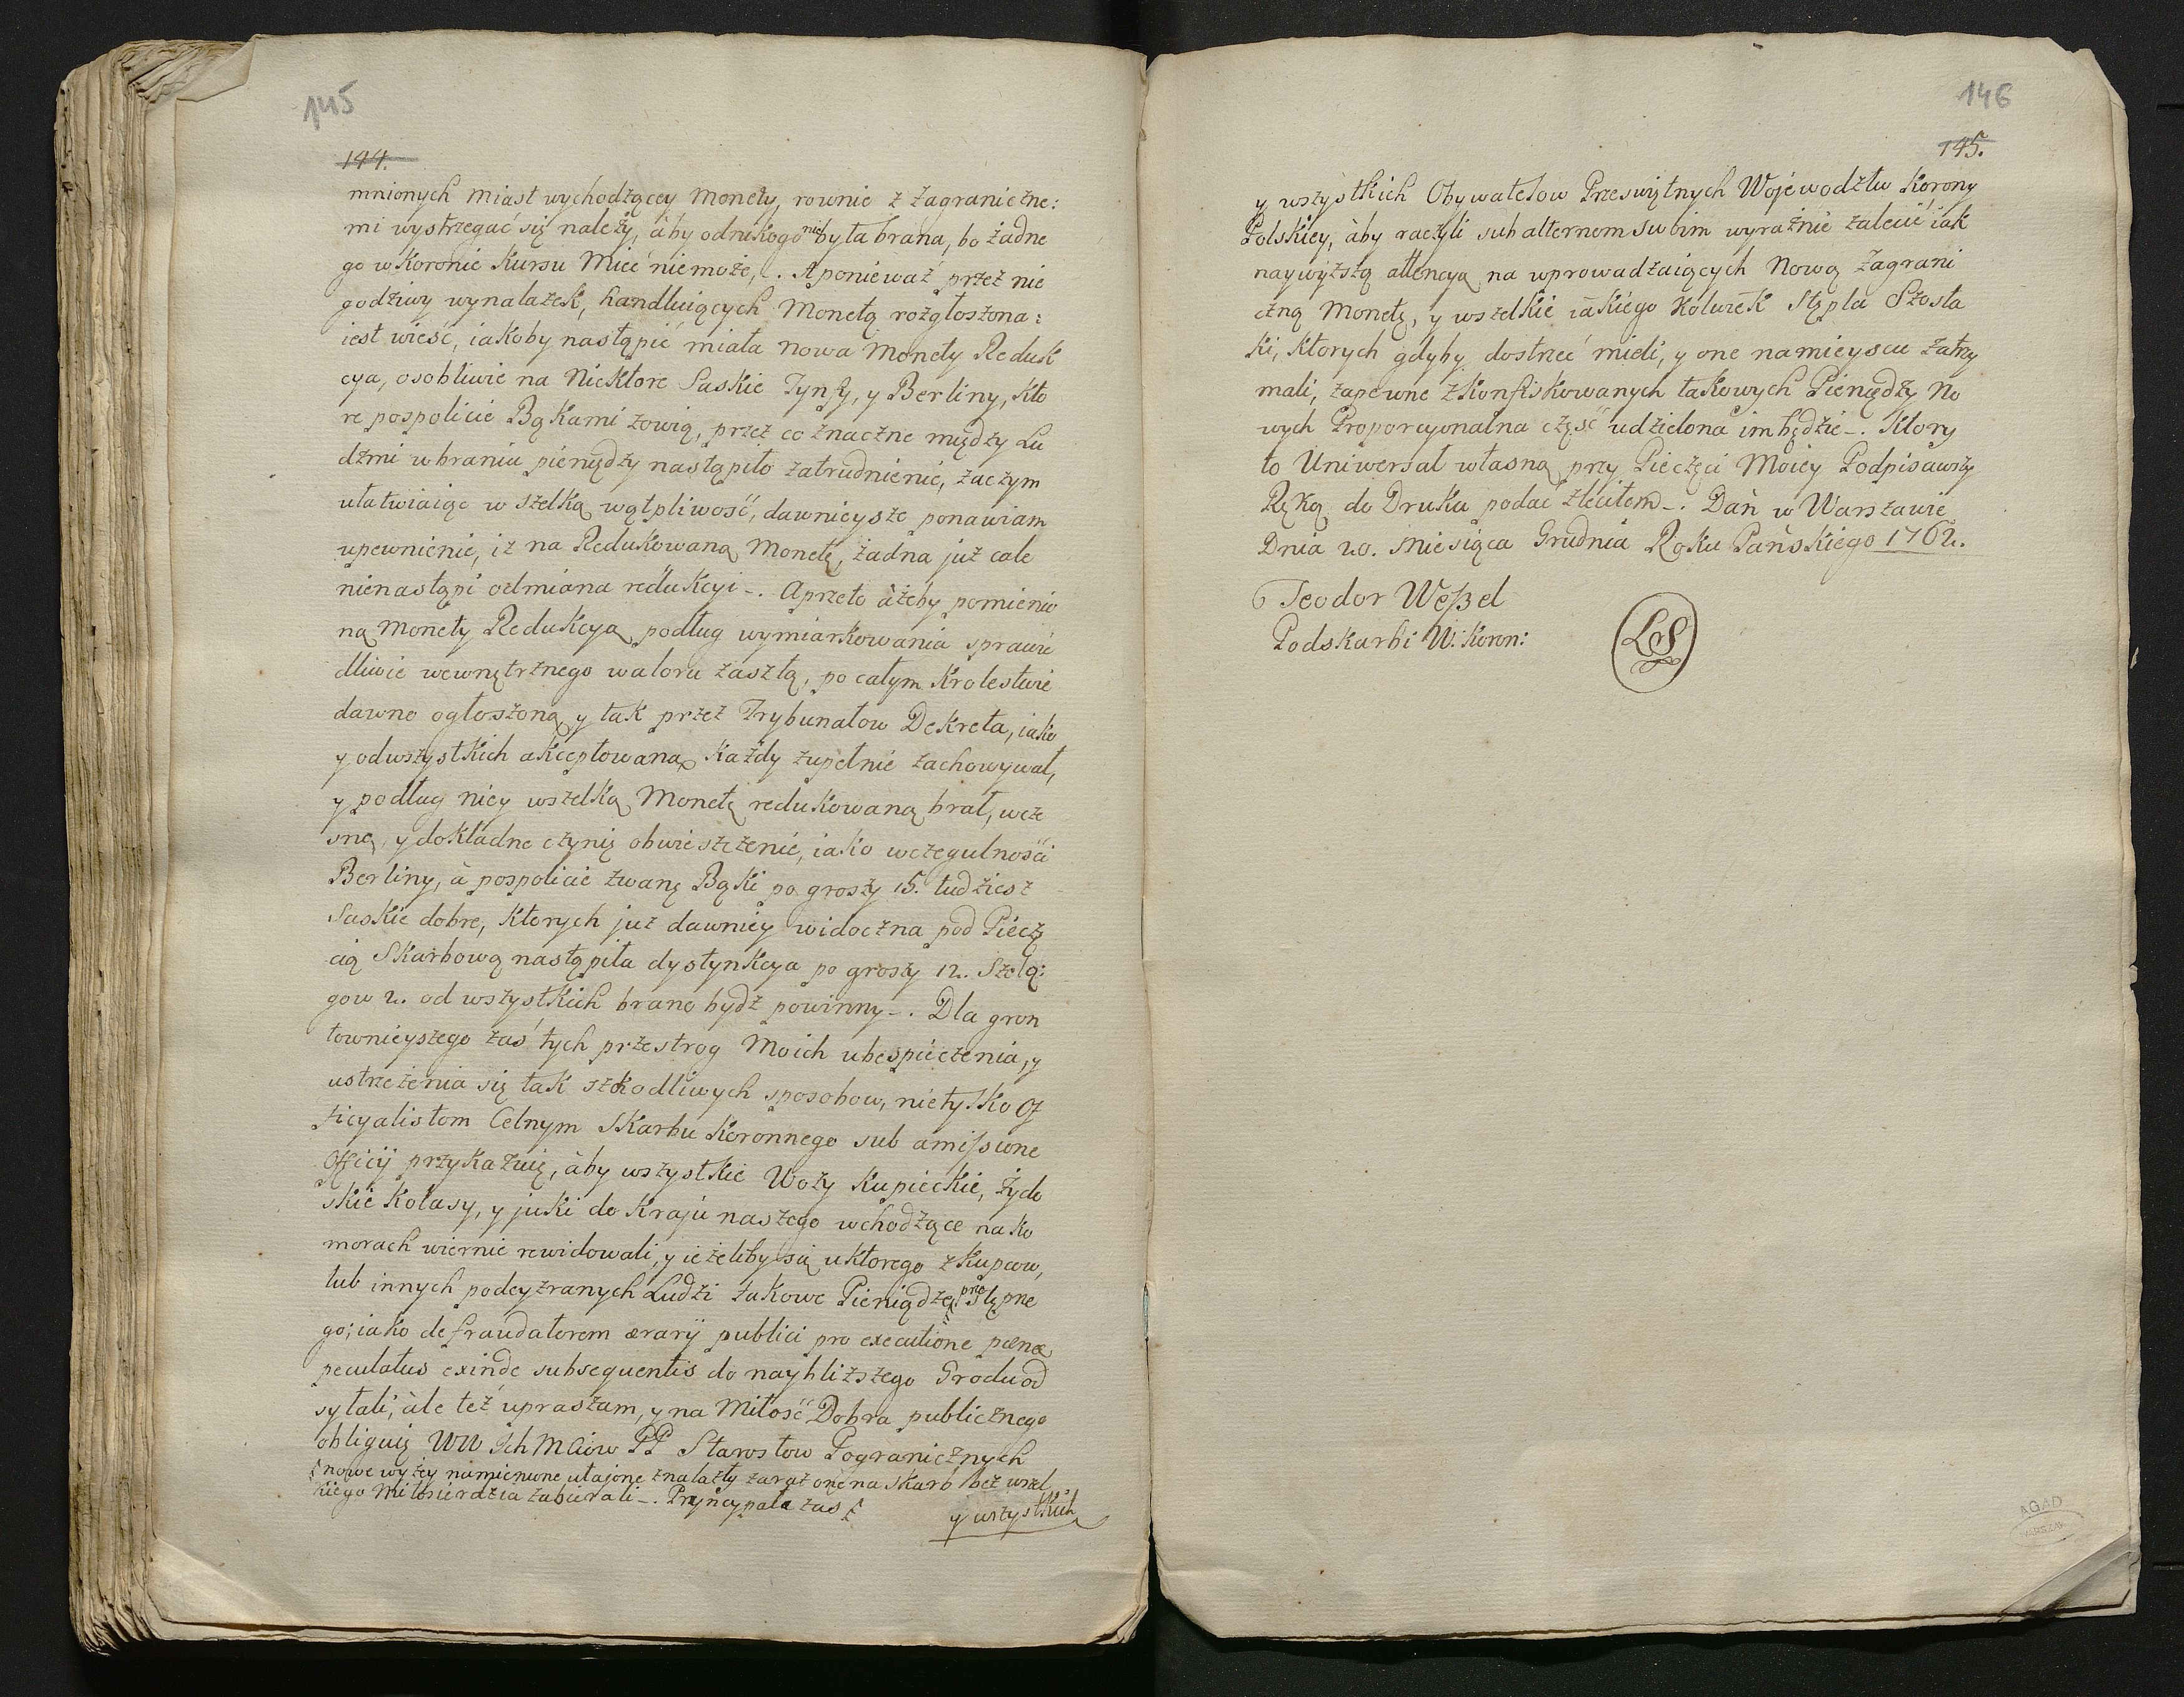 145
144.
mnionych Miast wychodzącey Monety, rownie z zagraniczne:
mi wystrzegać się należy, àby odnikogo nie była brana, bo żadne
go w Koronie Kursu Mieć niemoże, -. A ponieważ przez nie
godziwy wynalazek, handluiących Monetą rozgłoszona:
iest wieść, iakoby nastąpić miała nowa Monety Reduk
cya, osobliwie na Niektore Saskie Tynfy, y Berliny, kto
re pospolicie Bąkami zowią, przez co znaczne między Lu
dźmi w braniu pieniędzy nastąpiło zatrudnienie, zaczym
ułatwiaiąc w szelką wątpliwość, dawnieysze ponawiam
upewnienie, iż na Redukowaną Monetę, żadna już cale
nienastąpi odmiana redukcyi -. Aprzeto àżeby pomienio
ną Monety Redukcyą podług wymiarkowania sprawie
dliwie wewnętrznego waloru zaszłą, po całym Krolestwie
dawno ogłoszoną y tak przez Trybunałow Dekreta, iako
y odwszystkich akceptowaną każdy zupełnie zachowywał,
y podług niey wszelką Monetę redukowaną brał, wcze
sne, y dokładne czynię obwieszczenie, iako wczegulności
Berliny, à pospolicie zwane Bąki po groszy 15. tudziesz
Saskie dobre, ktorych już dawniey widoczna pod Pieczę
cią Skarbową nastąpiła dystynkcya po groszy 12. Szelą:
gow 2. od wszystkich brane bydź powinny -. Dla grun
townieyszego zaś tych przestrog Moich ubespieczenia, y
ustrzeżenia się tak szkodliwych sposobow, nietylko Of
ficyalistom Celnym Skarbu Koronnego sub amissione
Officij przykazuię, àby wszystkie Wozy Kupieckie, Żydo
skie Kolasy, y juki do Kraju naszego wchodzące na ko
morach wiernie rewidowali, y ieżeliby się uktorego z Kupcow,
lub innych podeyzranych Ludzi takowe Pieniądze prze Stępne
go; iako defraudatorem ærarij publici pro executione pænæ
peculatus exinde subsequentis do naybliższego Grodu od
syłali; àle też upraszam, y na Miłość Dobra publicznego
obliguię WW Ich MCiow PP Starostow Pogranicznych
nowe wyżey namienione utajone znalazły zaraz one na skarb bez wszel
kiego Miłosierdzia zabierali -. Pryncypała zas
y wszystkich
146
145.
y wszystkich Obywatelow Przeświętnych Wojewodztw Korony
Polskiey, àby raczyli subalternom swoim wyraźnie zalecić iak
naywyższą attencyą na wprowadzaiących Nową zagrani
czną Monetę, y wszelkie iakiego kolwiek Stępla Szosta
ki, ktorych gdyby dostrzec mieli, y one namieyscu zatrzy
mali, zapewne zkonfiskowanych takowych Pieniędzy No
wych Proporcyonalna część udzielona im będzie -. Ktory
to Uniwersał własną przy Pieczęci Moiey Podpisawszy
Ręką do Druku podać zleciłem -. Dań w Warszawie
Dnia 20. Miesiąca Grudnia Roku Pańskiego 1762.
Teodor Weßel
Podskarbi W: Koron:
LS
AGAD